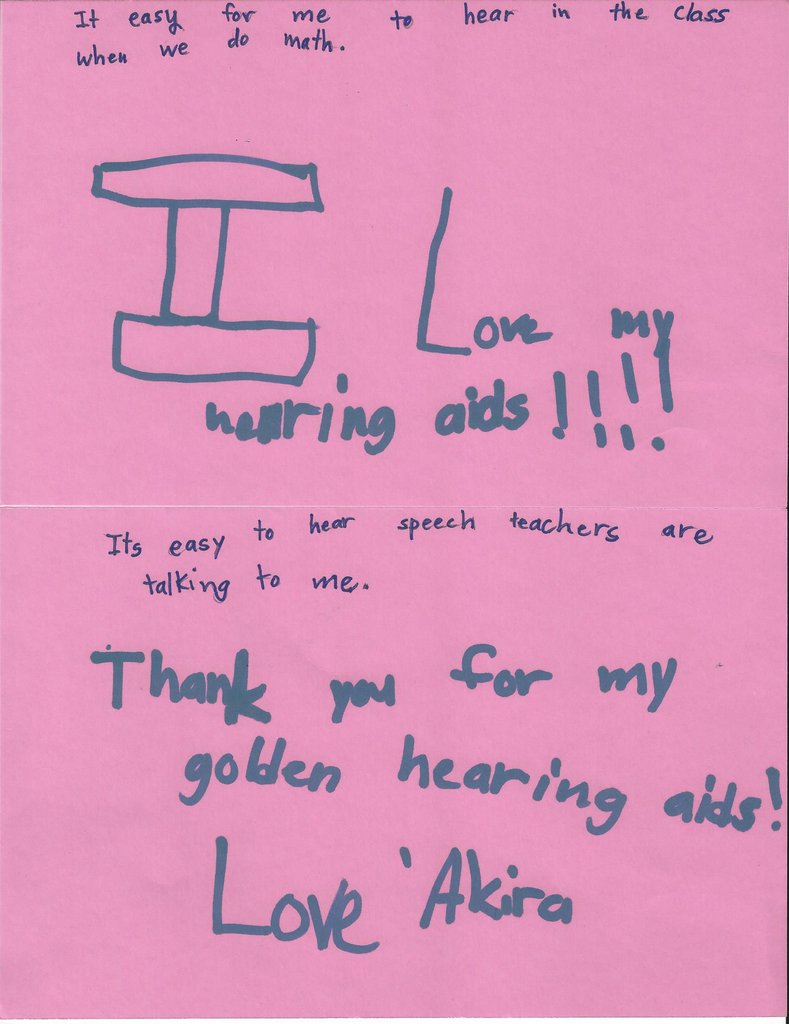 It easy for me to hear in the class
when we do math.
I Love my
hearing aids!!!!
Its easy to hear speech teachers are
talking to me.
Thank you for my
golden hearing aids!
Love 'Akira